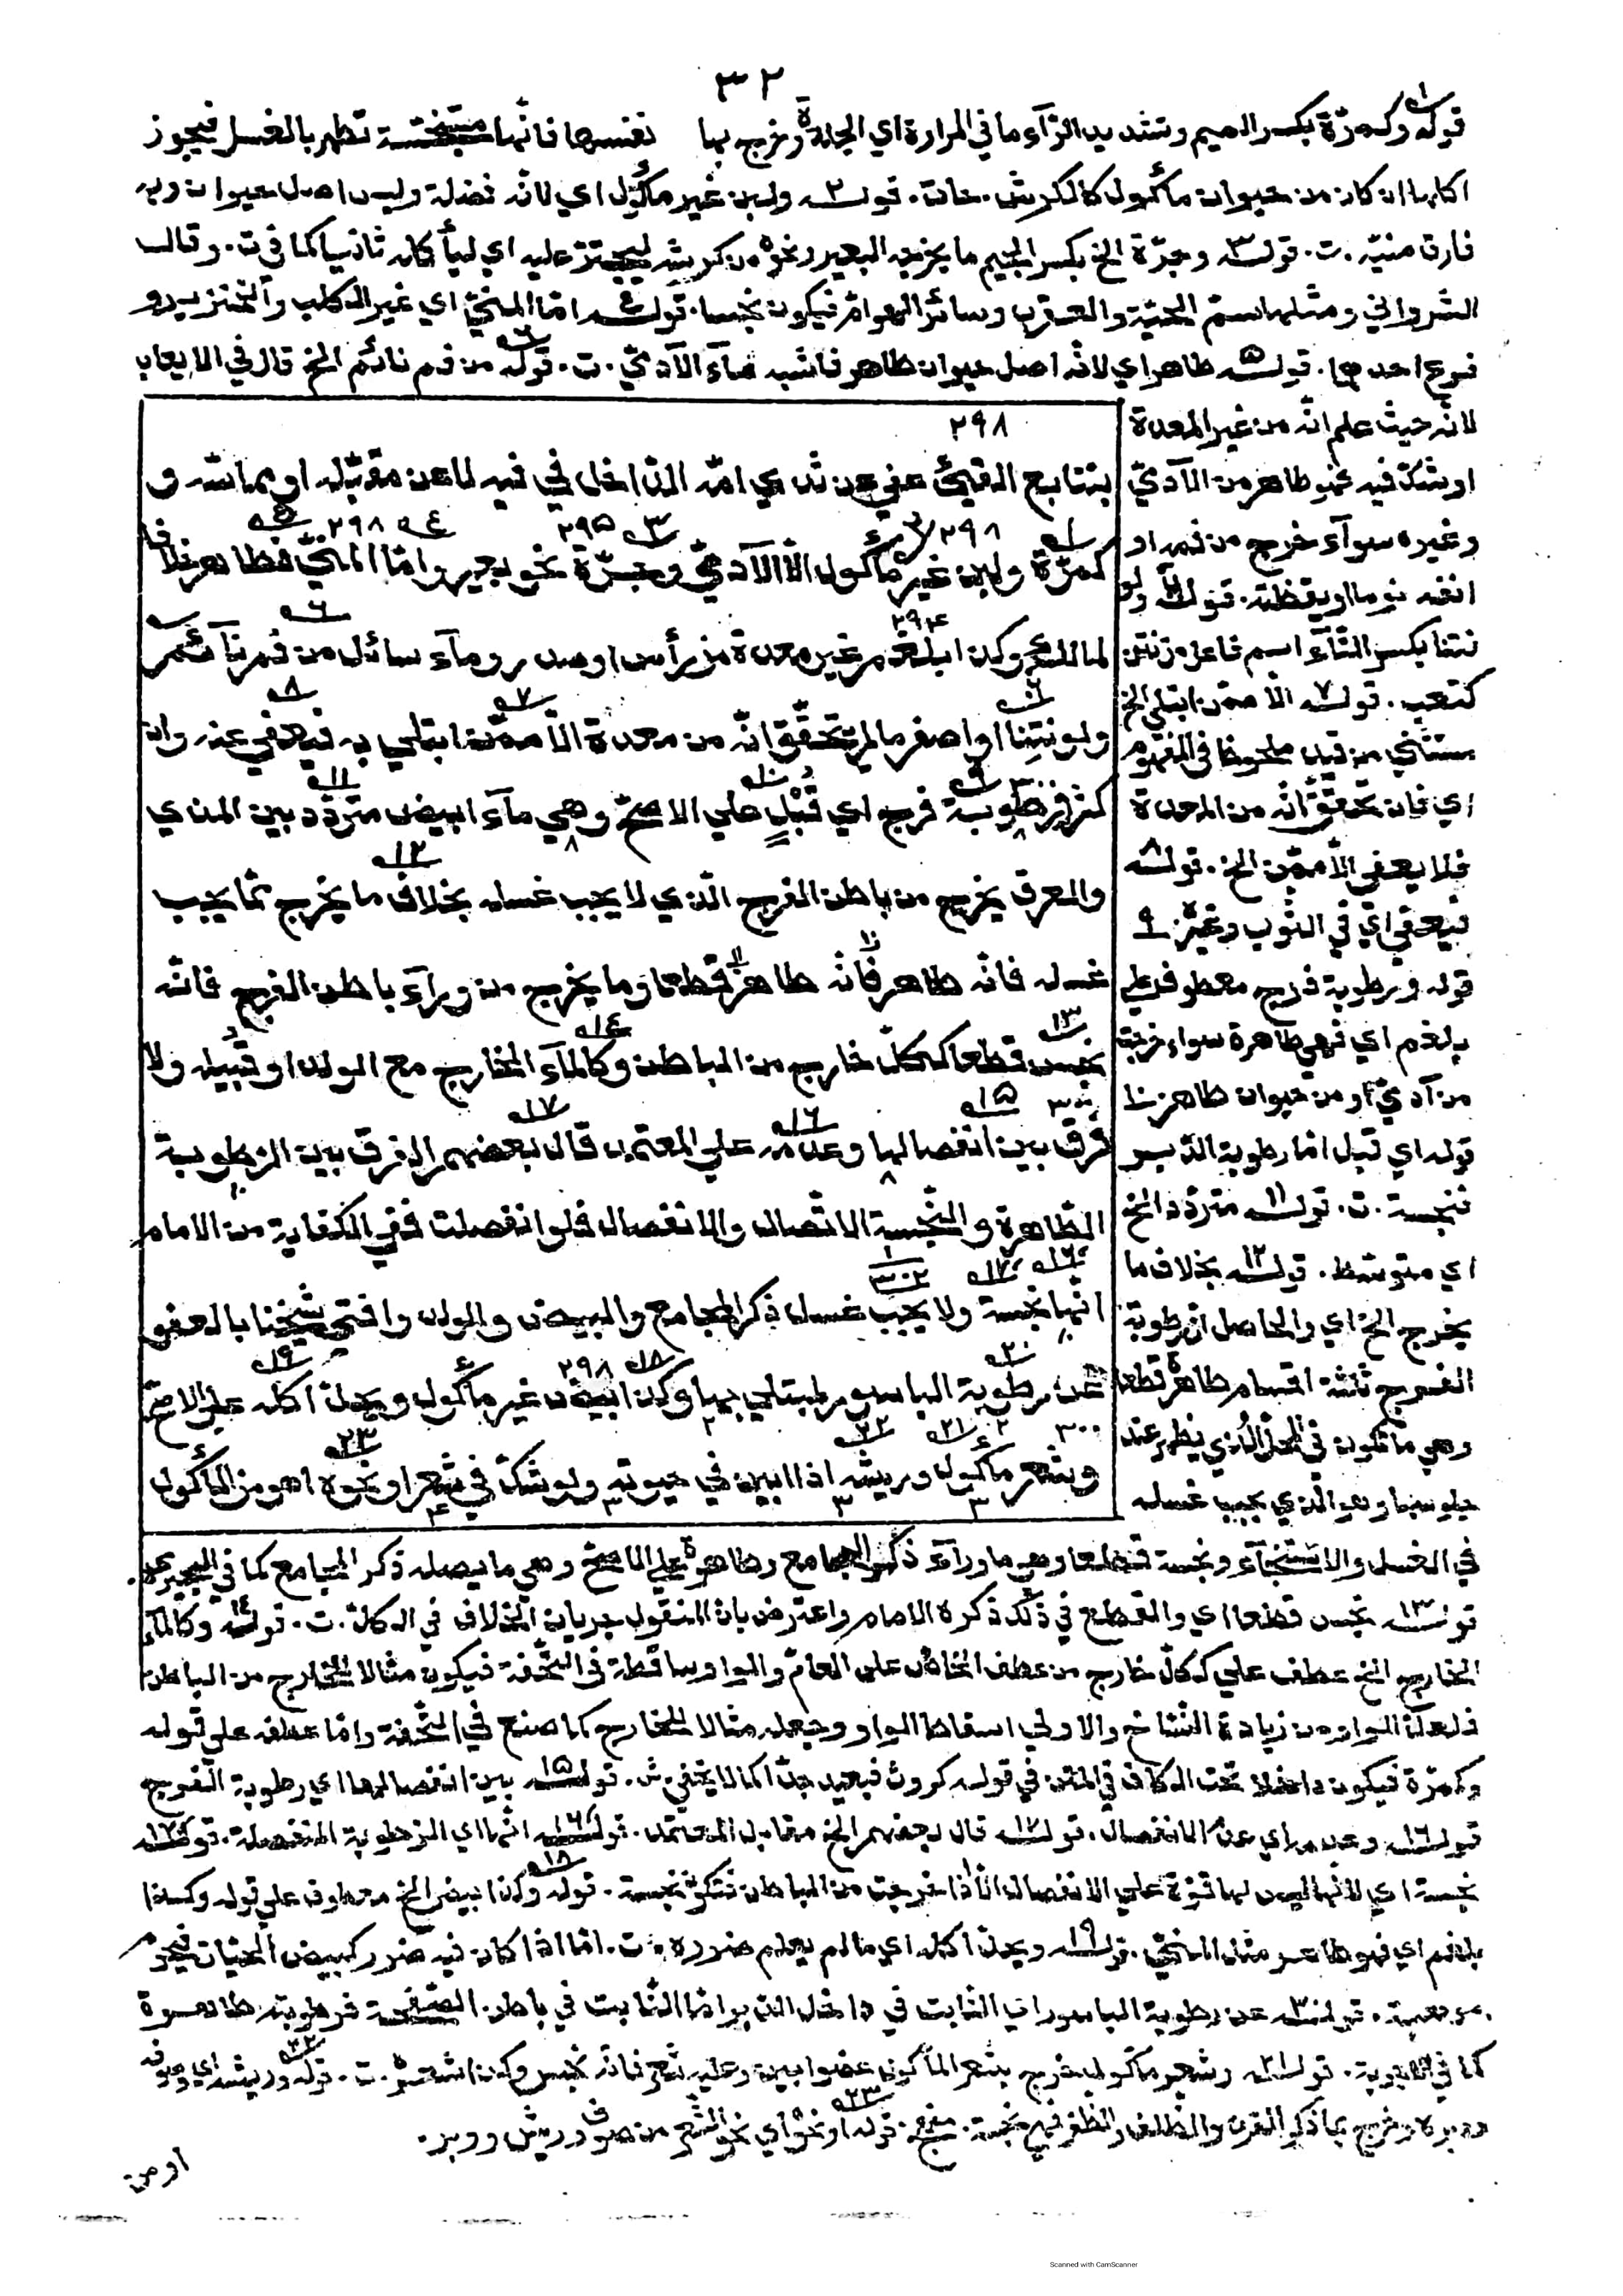 ٣٢
قوله وكمرّة بكسر الميم وتشديد الرّاء ما في المرارة اي الجلدة وخرج بها نفسها فانّها متنجّسة تطهر بالغسل فيجوز
اكلها ان كان من حيوان مأكول كالكرش. قوله ولبن غير مأكول اي لانّه فضلة وليس اصل حيوان وبه
فارق منيّه. ت. قوله وجرّة الخ بكسر الجيم ما يخرجه البعير ونحوه من كرشه ليجترّ عليه اي ليأكله ثانيا كما في ت. وقال
الشرواني ومثلها سمّ الحيّة والعقرب وسائر الهوامّ فيكون نجسا. قوله امّا المنيّ اي غير الكلب والخنزير و
فرع احدهما. قوله طاهر اي لانّه اصل حيوان طاهر فاشبه منيّ الآدميّ. ت. قوله من فم نائم الخ قال في الايعاب
لانّه حيث علم انّه من غير المعدة
او شكّ فيه فهو طاهر من الآدميّ
وغيره سوآء خرج من فمه او
انفه نوما او يقظة. قوله ولو
نتنا بكسر التّاء اسم فاعل من نتن
كتعب. قوله الّا ممّن ابتلي الخ
مستثني من قيد ملحوظ في المفهوم
اي فان تحقّق انّه من المعدة
فلا يعفي الّا ممّن الخ. قوله
فيعفي اي في الثوب وغيره. ٩
قوله ورطوبة فرج معطوف علي
بلغم اي فهي طاهرة سواء خرجت
من آدميّ او من حيوان طاهر. ١٠
قوله اي قبل امّا رطوبة الدّبر
فنجسة. ت. قوله متردّد الخ
اي متوسّط. قوله بخلاف ما
يخرج الخ اي والحاصل انّ رطوبة
الفرج ثلثة اقسام طاهرة قطعا
وهي ما تكون في المحلّ الّذي يظهر عند
جلوسها وهو الذي يجب غسله
٢٩٨
بتتابع القيئ عفي عن ثدي امّه الدّاخل في فيه لا عن مقبّله او مماسّه و
كمرّة ولبن غير مأكول الّا الآدميّ وجرّة نحو بعير وامّا المنيّ فطاهر خلافا
لمالك وكذا بلغم غير معدة من رأس او صدر ومآء سائل من فم نآئم
ولو نتنا او اصفر ما لم يتحقّق انّه من معدة الّا ممّن ابتلي به فيعفي عنه وان
كثر ورطوبة فرج اي قبل علي الاصحّ وهي مآء ابيض متردّد بين المذي
والعرق يخرج من باطن الفرج الّذي لا يجب غسله بخلاف ما يخرج ممّا يجب
غسله فانّه طاهر فانّه طاهر قطعا وما يخرج من ورآء باطن الفرج فانّه
نجس قطعا ككلّ خارج من الباطن وكالمآء الخارج مع الولد او قبيله ولا
فرق بين انفصالها وعدمه علي المعتمد قال بعضهم الفرق بين الرّطوبة
الطّاهرة والنّجسة الاتّصال والانفصال فلو انفصلت ففي الكفاية من الامام
انّها نجسة ولا يجب غسل ذكر المجامع والبيض والولد وافتي شيخنا بالعفو
عن رطوبة الباسور لمبتلي بها وكذا بيض غير مأكول ويحلّ اكله علي الاصحّ
وشعر مأكول وريشه اذا ابين في حيوته ولو شكّ في شعر او نحوه اهو من المأكول
في الغسل والاستنجآء ونجسة قطعا وهي ما ورآء ذكر المجامع وطاهرة علي الاصحّ وهي ما يصله ذكر المجامع كما في البجيرمي.
قوله نجس قطعا اي والقطع في ذلك ذكره الامام واعترض بان المنقول جريان الخلاف في الكلّ. ت. قوله وكالمآء
الخارج الخ عطف علي ككلّ خارج من عطف الخاصّ علي العامّ والواو ساقطة في التّحفة فيكون مثالا للخارج من الباطن
فلعلّ الواو من زيادة النّسّاخ والاولي اسقاط الواو وجعله مثالا للخارج كما صنع في التّحفة وامّا عطفه علي قوله
وكمرّة فيكون داخلا تحت الكاف في المتن في قوله كروث فبعيد جدّا كما لا يخفي. ش. قوله بين انفصالها اي رطوبة الفرج
قوله وعدمه اي عدم الانفصال. قوله قال بعضهم الخ مقابل المعتمد. قوله انّها اي الرّطوبة المنفصلة. قوله
نجسة اي لانّها ليس لها قوّة علي الانفصال الّا اذا خرجت من الباطن فتكون نجسة. قوله وكذا بيض الخ معطوف علي قوله وكذا
بلغم اي فهو طاهر مثل المنيّ. قوله ويحلّ اكله اي ما لم يعلم ضرره. ت. امّا اذا كان فيه ضرر كبيض الحيّات فيحرم
. قوله عن رطوبة الباسور اي الثابت في داخل الدّبر امّا الثّابت في باطن الصّفحة فرطوبته طاهرة
كما في . قوله وشعر مأكول خرج بشعر المأكول عضو ابين وعليه شعر فانّه نجس وكذا شعره. ت. قوله وريشه اي وصوفه
ووبره وخرج بما ذكر القرن والظّلف والظّفر فهي نجسة. قوله او نحوه اي نحو الشّعر من صوف وريش ووبر.
او من
Scanned with CamScanner